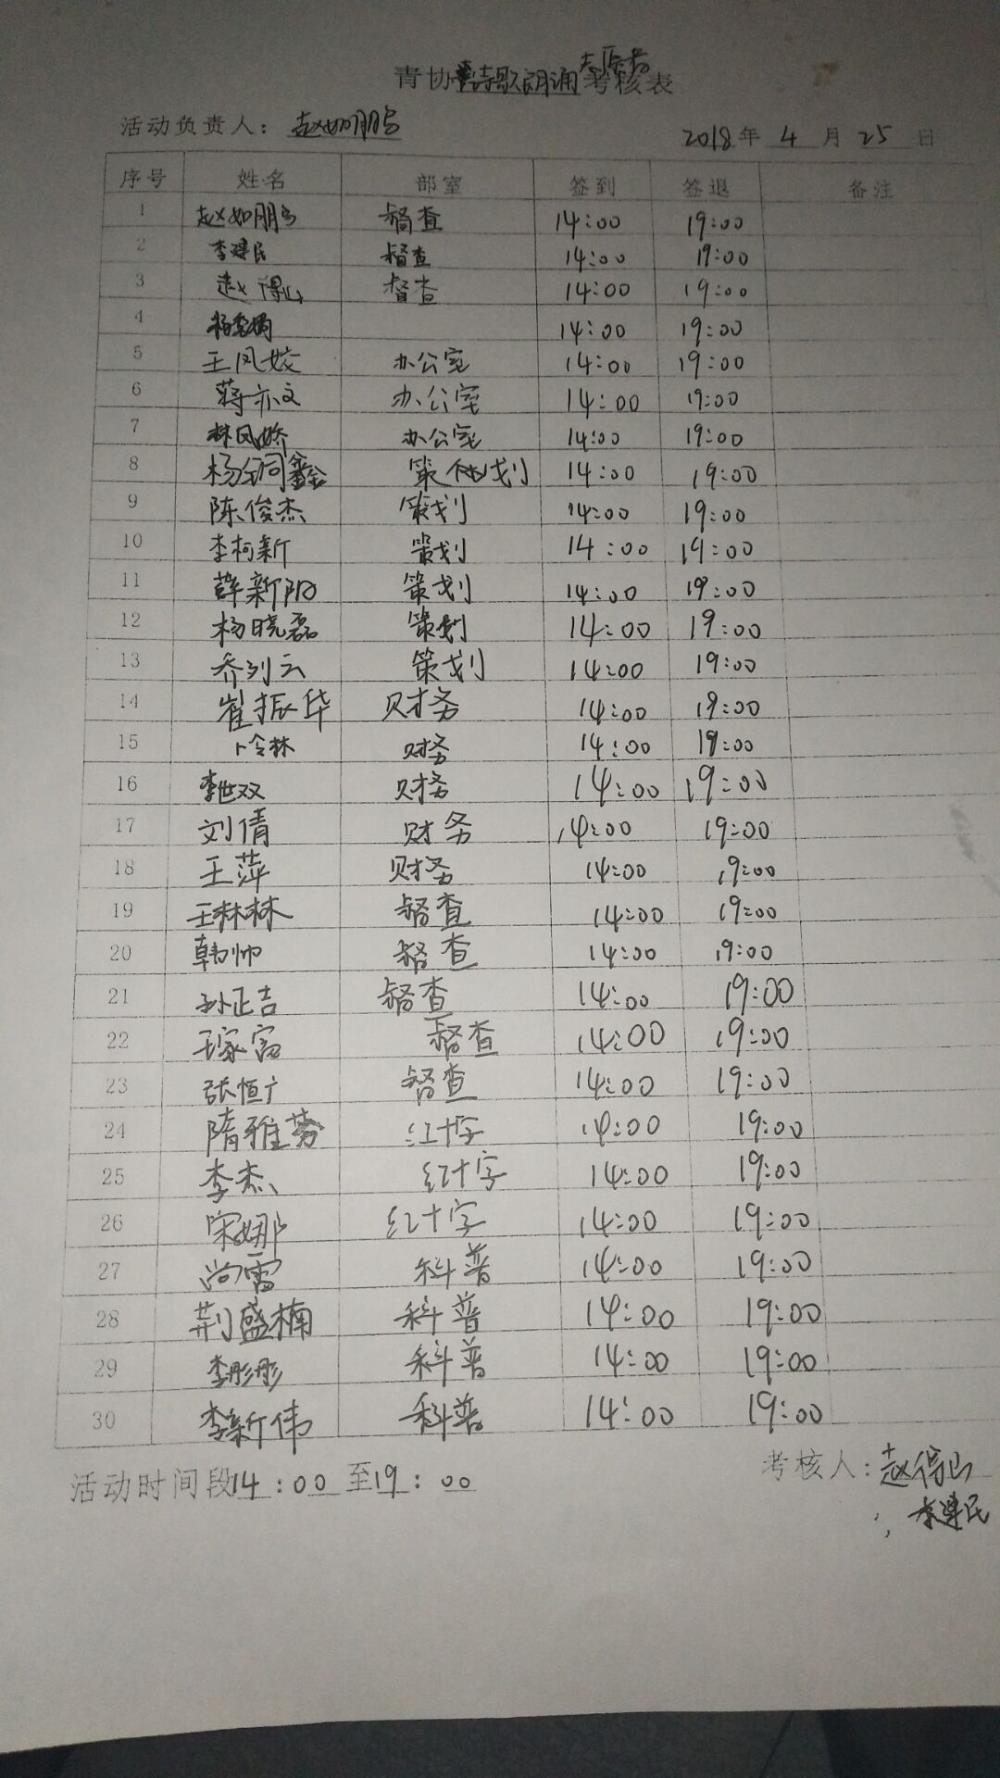 青协诗歌朗诵志愿者考核表
活动负责人：赵如鹏 2018年 4 月 25 日
序号 姓名 部室 签到 签退 备注
1 赵如鹏 督查 14:00 19:00
2 李建民 督查 14:00 19:00
3 赵得山 督查 14:00 19:00
4 14:00 19:00
5 王凤姣 办公室 14:00 19:00
6 蒋亦文 办公室 14:00 19:00
7 林凤娇 办公室 14:00 19:00
8 杨钧鑫 策划 14:00 19:00
9 陈俊杰 策划 14:00 19:00
10 李柯新 策划 14:00 19:00
11 薛新阳 策划 14:00 19:00
12 杨晓磊 策划 14:00 19:00
13 乔列云 策划 14:00 19:00
14 崔振华 财务 14:00 19:00
15 卜令林 财务 14:00 19:00
16 李世双 财务 14:00 19:00
17 刘倩 财务 14:00 19:00
18 王萍 财务 14:00 19:00
19 王林林 督查 14:00 19:00
20 韩帅 督查 14:00 19:00
21 孙正吉 督查 14:00 19:00
22 王家富 督查 14:00 19:00
23 张恒广 督查 14:00 19:00
24 隋雅芬 红十字 14:00 19:00
25 李杰 红十字 14:00 19:00
26 宋娜 红十字 14:00 19:00
27 尚雷 科普 14:00 19:00
28 荆盛楠 科普 14:00 19:00
29 李彤彤 科普 14:00 19:00
30 李新伟 科普 14:00 19:00
活动时间段14：00 至19：00 考核人：赵得山
李建民